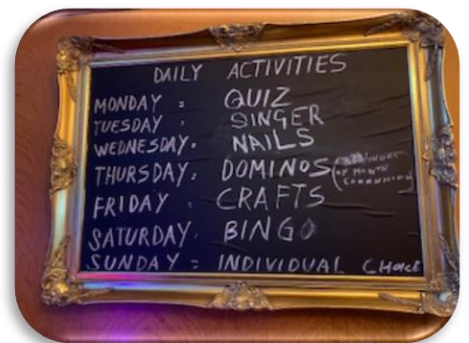 DAILY ACTIVITIES
MONDAY : QUIZ
TUESDAY : SINGER
WEDNESDAY. NAILS
THURSDAY. DOMINOS
OF MONTH
FRIDAY : CRAFTS
SATURDAY. BINGO
SUNDAY = INDIVIDUAL CHOICE